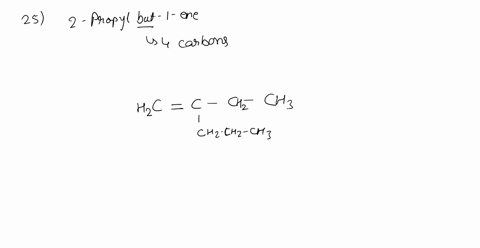 25) 2-Propyl but-1-ene
↳ 4 carbons
H₂C = C - CH₂- CH₃
CH₂-CH₂-CH₃